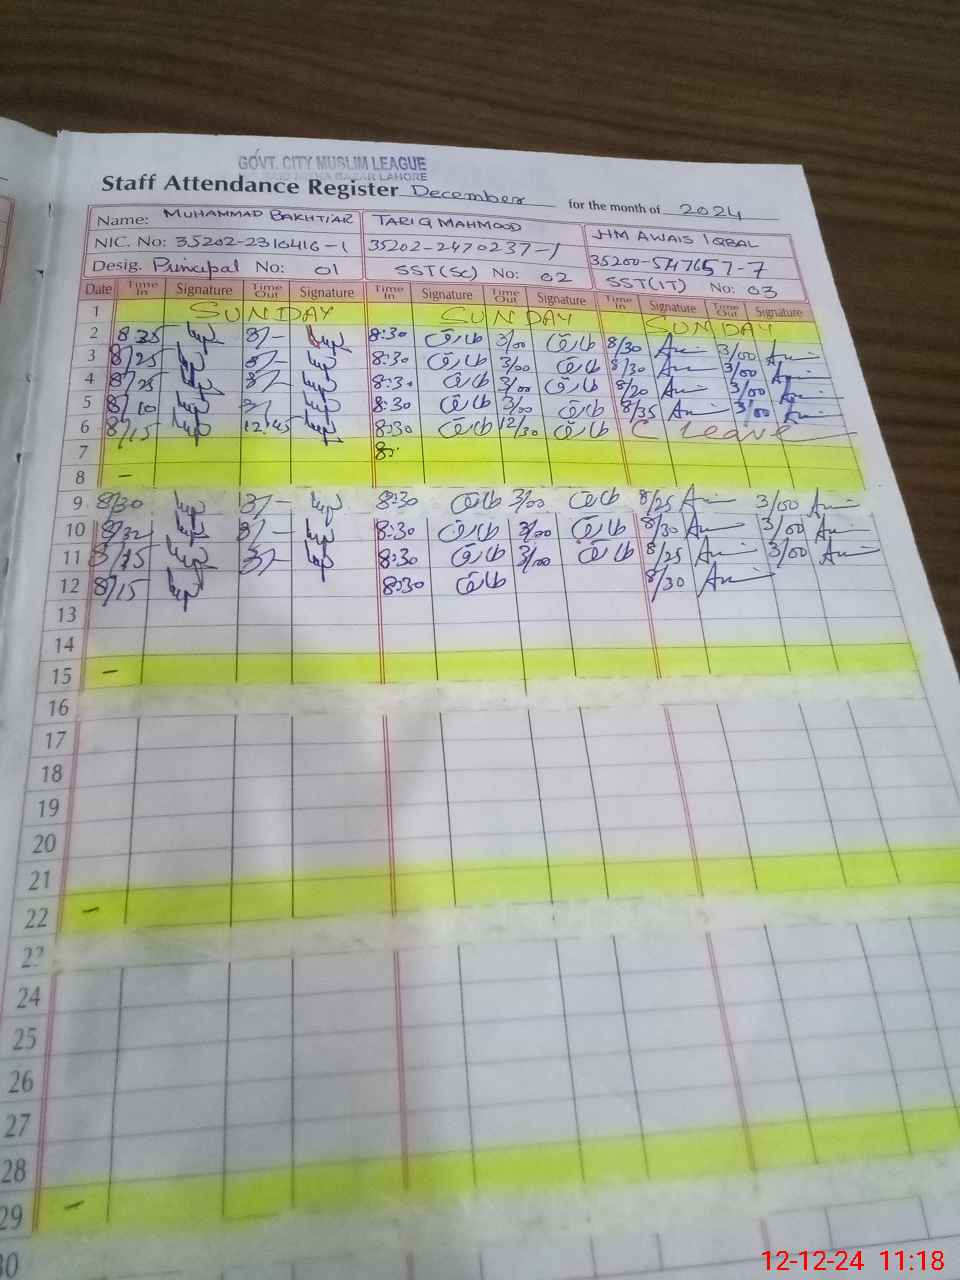 GOVT. CITY MUSLIM LEAGUE
BAZAR LAHORE
Staff Attendance Register December for the month of 2024
Name: MUHAMMAD BAKHTIAR TARIQ MAHMOOD HM AWAIS IQBAL
NIC. No: 35202-2316416-1 35202-2470237-1
Desig. Principal No: 01 SST(SC) No: 02 SST(IT) No: 03
Date Time In Signature Time Out Signature Time In Signature Time Out Signature Time In Signature Time Out Signature
1 SUNDAY SUNDAY SUNDAY
2 8:30 طارق 3/00 طارق 8/30 3/00
3 8/25 8:30 طارق 3/00 طارق 8/30 3/00
4 8/25 8:30 طارق 3/00 طارق 8/20 3/00
5 8/10 8:30 طارق 3/00 طارق 8/35 3/00
6 8/15 12:45 8:30 طارق 12/30 طارق C Leave
7 8:
8 -
9 8/30 8:30 طارق 3/00 طارق 8/25 3/00
10 8/32 8:30 طارق 3/00 طارق 8/30 3/00
11 8/15 8:30 طارق 3/00 طارق 8/25 3/00
12 8/15 8:30 طارق 8/30
13
14
15 -
16
17
18
19
20
21
22 -
23
24
25
26
27
28
29 -
30
12-12-24 11:18